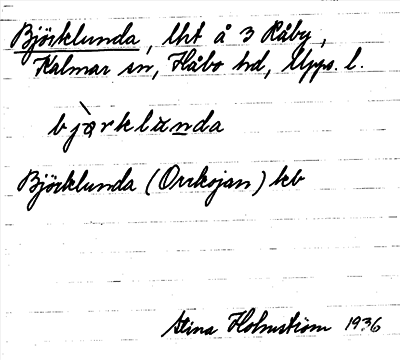 Björklunda, lht å 3 Råby,
Kalmar sn, Håbo hd, Upps. l.
bjə̀rklända
Björklunda (Orrkojan) kb
Stina Holmström 1936